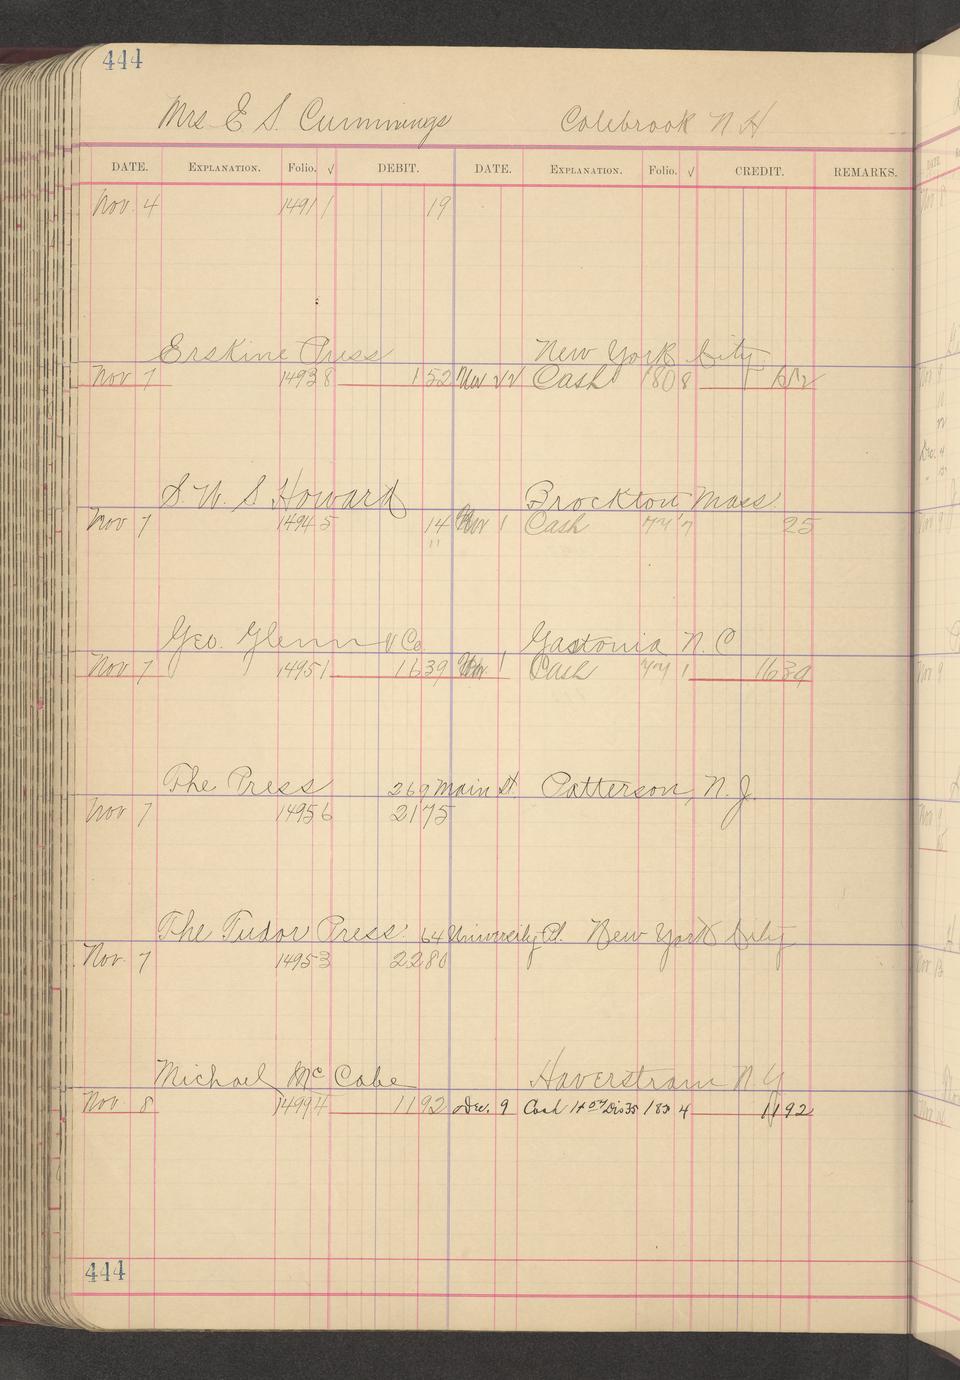 444
Mrs E S. Cummings Colebrook N H
DATE. EXPLANATION. Folio. √ DEBIT. DATE. EXPLANATION. Folio. √ CREDIT. REMARKS.
Nov. 4 14911 19
Erskine Press New York City
Nov 7 14938 152 Nov 22 Cash 1808 1 52
S. W. S Howard Brockton, Mass.
Nov 7 14945 14 Nov 1 Cash 77 7 25
11
Geo. Glenn & Co. Gastonia N. C
Nov 7 14951 1639 Nov 1 Cash 77 1 1639
The Press 269 Main St. Patterson, N. J.
Nov 7 14956 2175
The Tudor Press. 64 University Pl. New York City
Nov. 7 14953 2280
Michael Mc Cabe Haverstraw N. Y
Nov. 8 14994 1192 Dec. 9 Cash Dis 35 183 4 1192
444